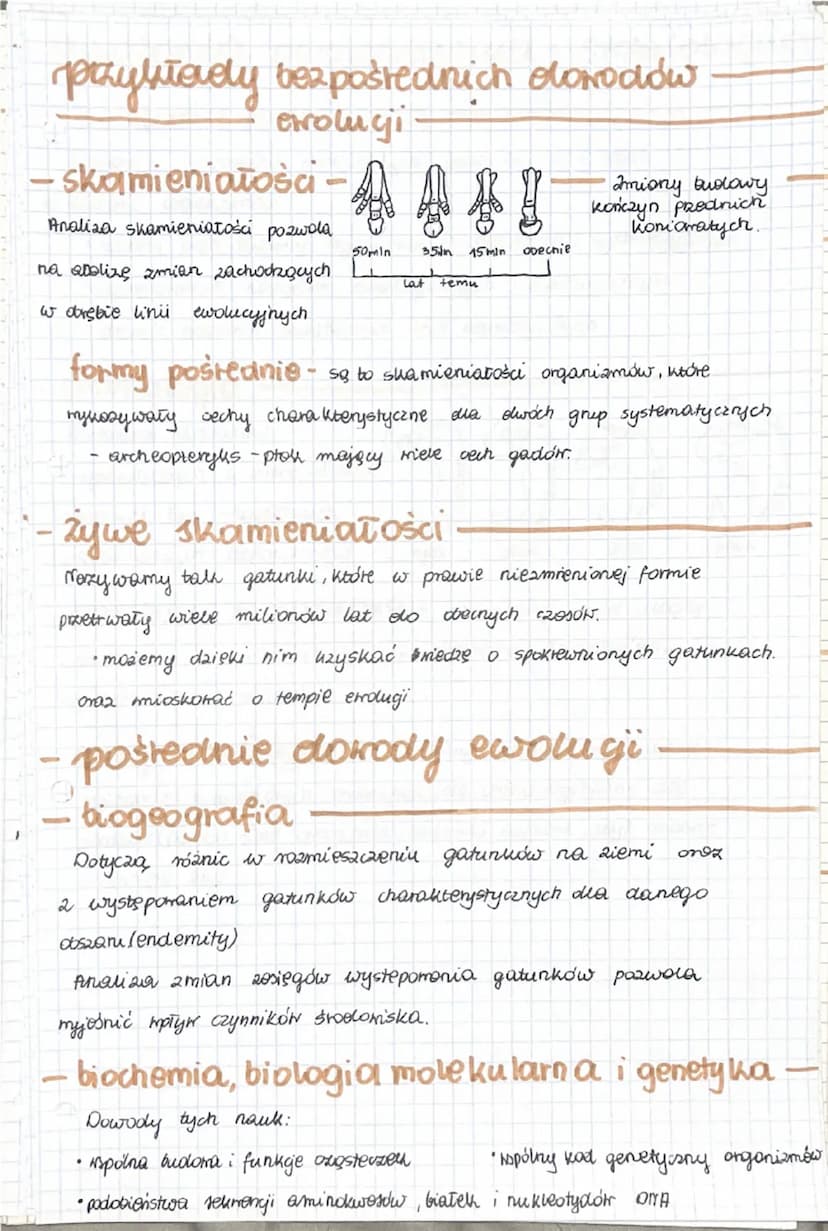 przykłady bezpośrednich dowodów
ewolucji
- skamieniałości -
zmiany budowy
kończyn przednich
koniowatych.
Analiza skamieniałości pozwala
50mln 35mln 15mln obecnie
na analizę zmian zachodzących
lat temu
w obrębie linii ewolucyjnych
formy pośrednie - są to skamieniałości organizmów, które
wykazywały cechy charakterystyczne dla dwóch grup systematycznych
- archeopteryks - ptak mający wiele cech gadów.
- żywe skamieniałości
Nazywamy tak gatunki, które w prawie niezmienionej formie
przetrwały wiele milionów lat do obecnych czasów.
• możemy dzięki nim uzyskać wiedzę o spokrewnionych gatunkach.
oraz wnioskować o tempie ewolucji
- pośrednie dowody ewolucji
- biogeografia
Dotyczą różnic w rozmieszczeniu gatunków na ziemi oraz
z występowaniem gatunków charakterystycznych dla danego
obszaru (endemity)
Analiza zmian zasięgów występowania gatunków pozwala
wyjaśnić wpływ czynników środowiska.
- biochemia, biologia molekularna i genetyka -
Dowody tych nauk:
• wspólna budowa i funkje cząsteczek • wspólny kod genetyczny organizmów
• podobieństwa sekwencji aminokwasów, białek i nukleotydów DNA